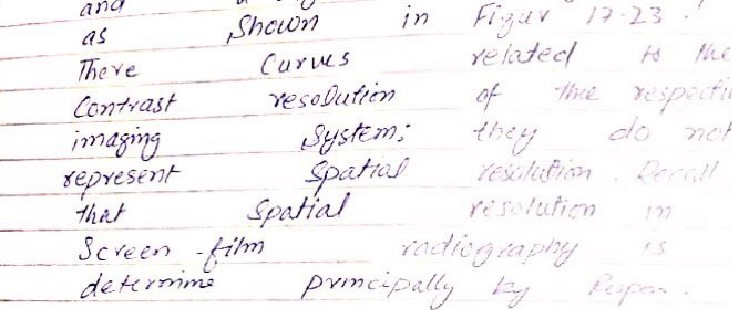 and
as Shown in Figur 17-23.
There Curves related to the
Contrast resolution of the respecti
imaging System; they do not
represent Spatial resolution. Recall
that Spatial resolution in
Screen-film radiography is
determine principally by